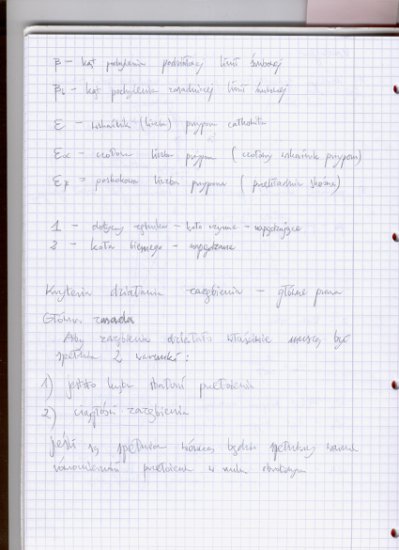 β – kąt pochylenia podziałowej linii śrubowej
βb – kąt pochylenia zasadniczej linii śrubowej
ε – wskaźnik (liczba) przyporu całkowita
εα – czołowa liczba przyporu (czołowy wskaźnik przyporu)
εβ = poskokowa liczba przyporu (przekładnie skośne)
1 – dotyczy – koła czynne – napędzające
2 – koła biernego – napędzane
Kryteria działania zazębienia – główne prawa
Główna zasada
Aby zazębienie działało właściwie muszą być
spełnione 2 warunki:
1) przełożenia
2) ciągłość zazębienia
jeśli są spełnione wówczas będzie spełniony warunek
przełożenia w